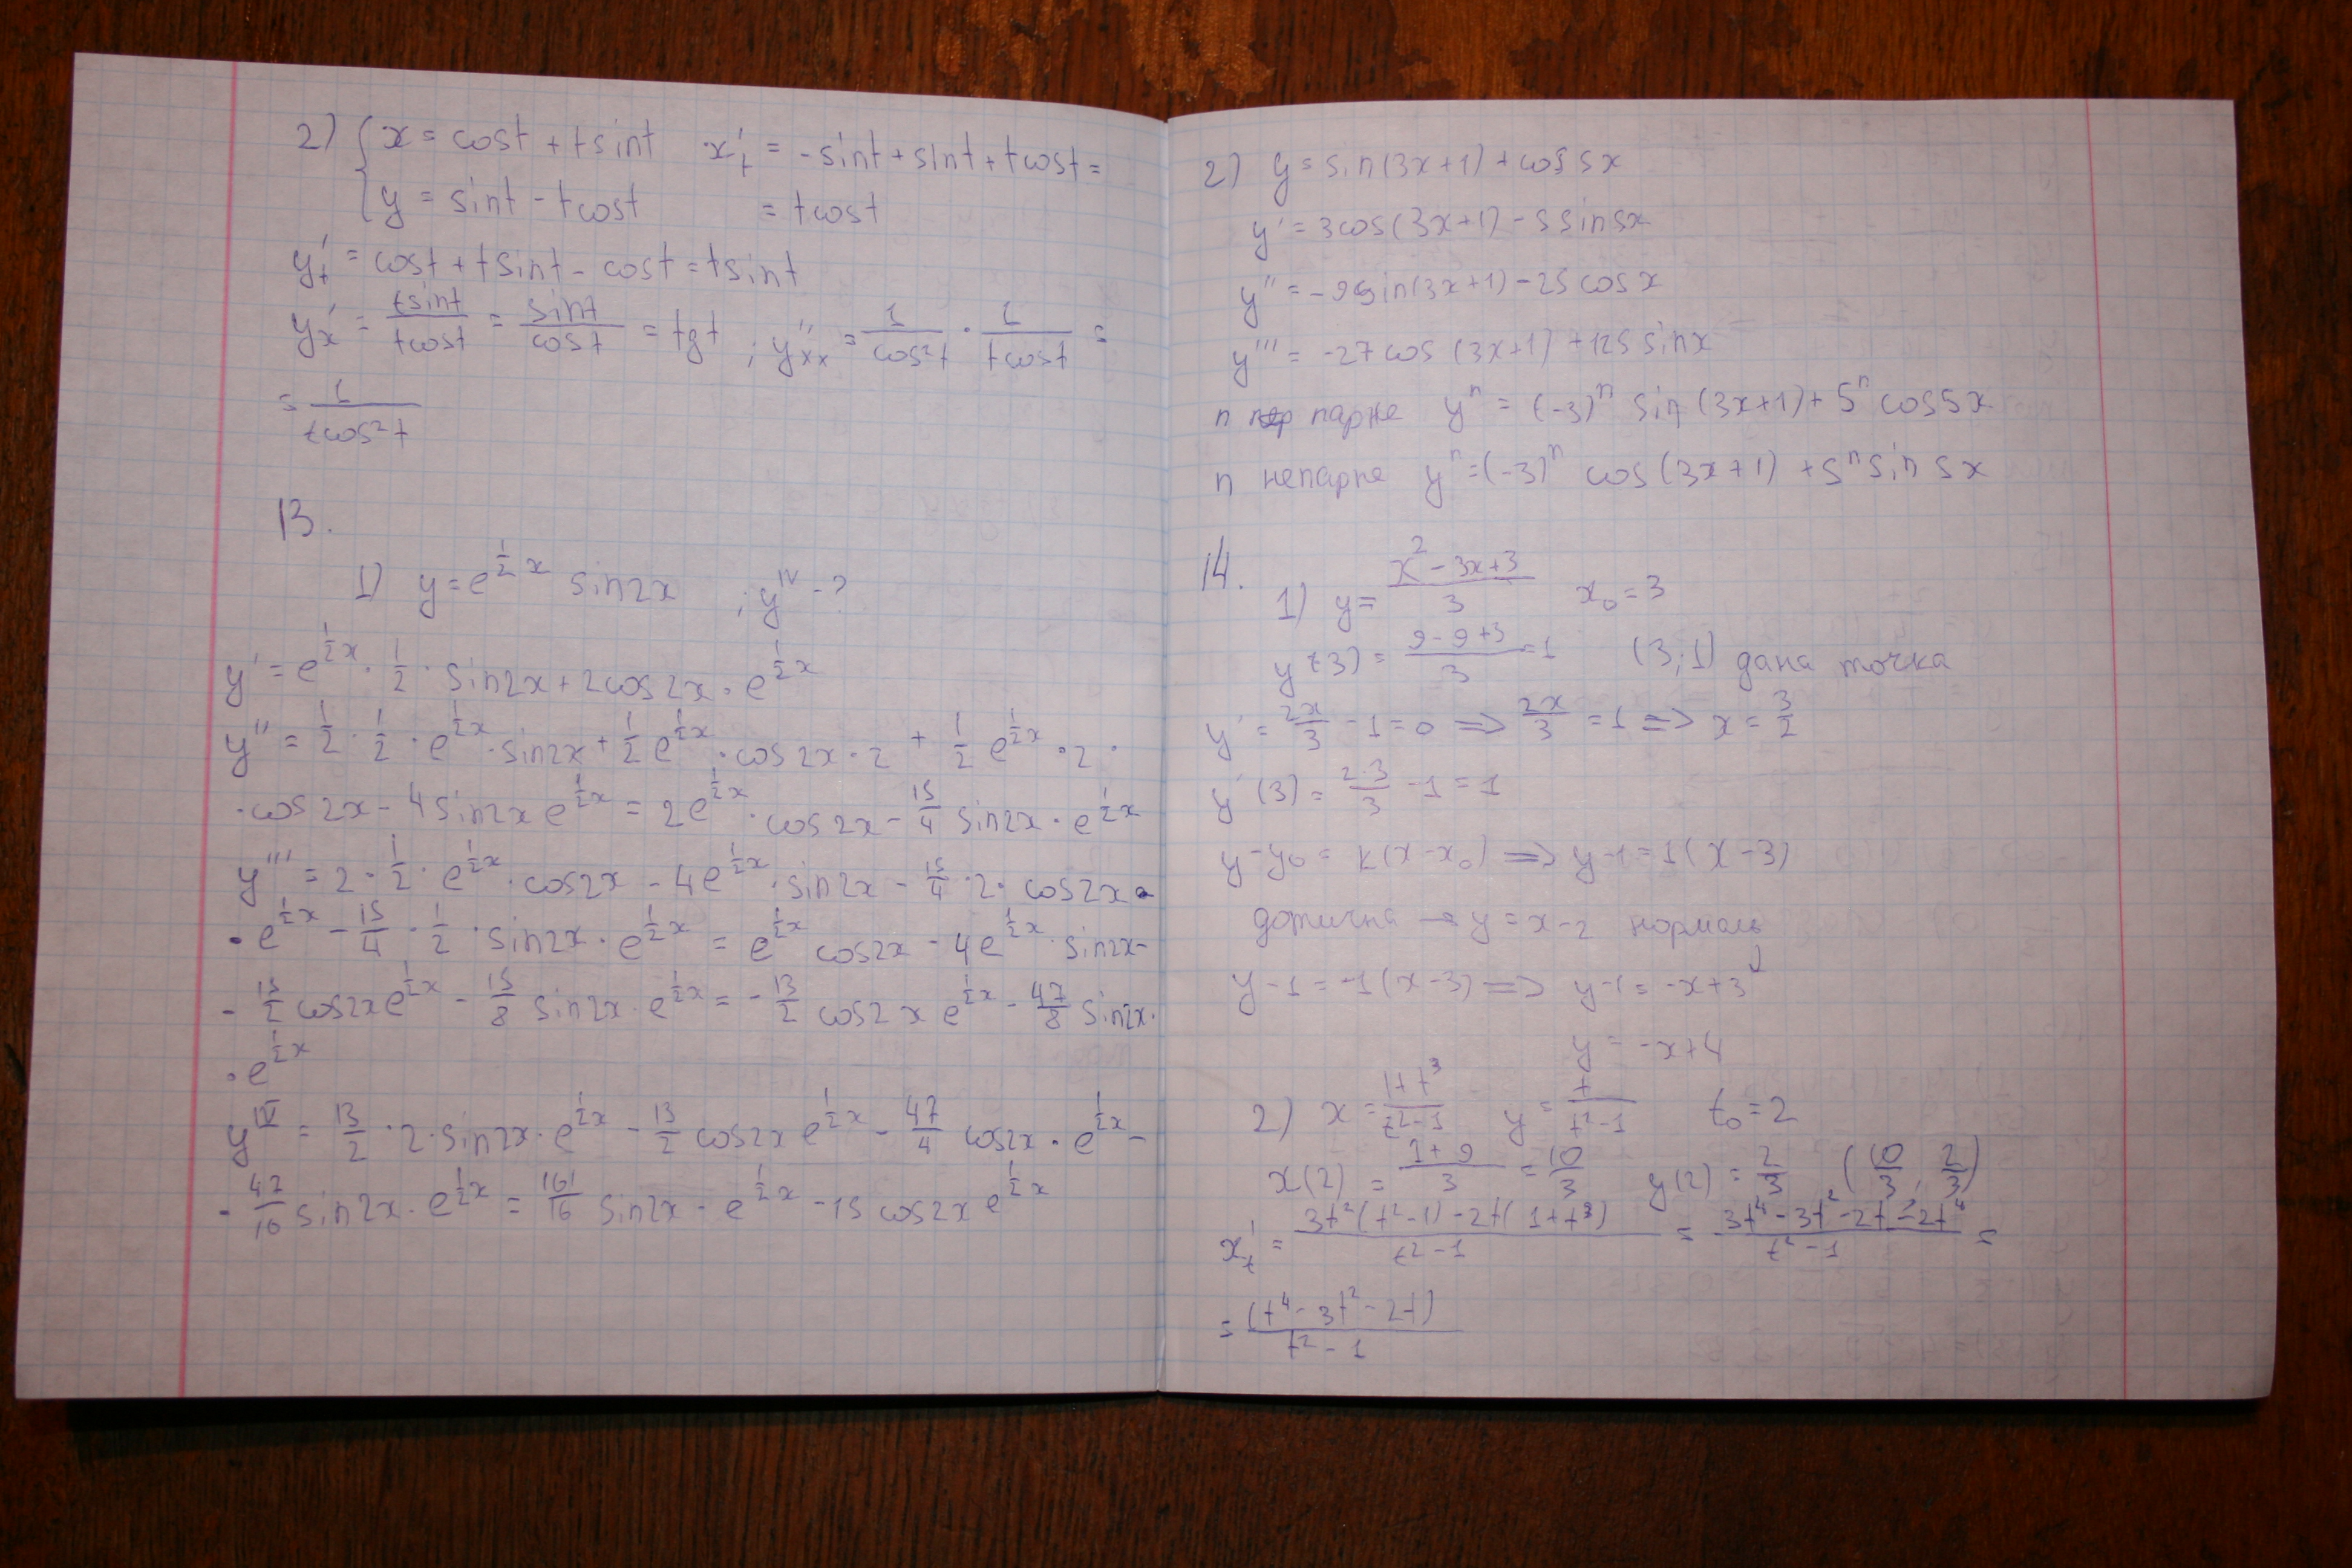 2) { x = cost + tsint x'ₜ = -sint + sint + tcost =
y = sint - tcost = tcost
y'ₜ = cost + tsint - cost = tsint
y'ₓ = tsint/tcost = sint/cost = tgt ; y''ₓₓ = 1/cos²t · 1/tcost =
= 1/tcos²t
13.
1) y = e^(1/2 x) sin2x ; y^IV - ?
y' = e^(1/2 x) · 1/2 · sin2x + 2cos2x · e^(1/2 x)
y'' = 1/2 · 1/2 · e^(1/2 x) · sin2x + 1/2 e^(1/2 x) · cos2x · 2 + 1/2 e^(1/2 x) · 2 ·
· cos2x - 4sin2x e^(1/2 x) = 2e^(1/2 x) · cos2x - 15/4 sin2x · e^(1/2 x)
y''' = 2 · 1/2 · e^(1/2 x) · cos2x - 4e^(1/2 x) · sin2x - 15/4 · 2 · cos2x ·
· e^(1/2 x) - 15/4 · 1/2 · sin2x · e^(1/2 x) = e^(1/2 x) cos2x - 4e^(1/2 x) · sin2x -
- 15/2 cos2x e^(1/2 x) - 15/8 sin2x · e^(1/2 x) = - 13/2 cos2x e^(1/2 x) - 47/8 sin2x ·
· e^(1/2 x)
y^IV = 13/2 · 2 · sin2x · e^(1/2 x) - 13/2 cos2x e^(1/2 x) - 47/4 cos2x · e^(1/2 x) -
- 47/16 sin2x · e^(1/2 x) = 161/16 sin2x - e^(1/2 x) - 15 cos2x e^(1/2 x)
2) y = sin(3x+1) + cos5x
y' = 3cos(3x+1) - 5sin5x
y'' = -9sin(3x+1) - 25cosx
y''' = -27cos(3x+1) + 125sinx
n парне yⁿ = (-3)ⁿ sin(3x+1) + 5ⁿ cos5x
n непарне yⁿ = (-3)ⁿ cos(3x+1) + 5ⁿ sin5x
14.
1) y = (x² - 3x + 3)/3 x₀ = 3
y(3) = (9-9+3)/3 = 1 (3;1) дана точка
y' = 2x/3 - 1 = 0 => 2x/3 = 1 => x = 3/2
y'(3) = 2·3/3 - 1 = 1
y - y₀ = k(x - x₀) => y - 1 = 1(x - 3)
дотична → y = x - 2 нормаль
y - 1 = -1(x - 3) => y - 1 = -x + 3
y = -x + 4
2) x = (1+t³)/(t²-1) y = t/(t²-1) t₀ = 2
x(2) = (1+9)/3 = 10/3 y(2) = 2/3 (10/3, 2/3)
x'ₜ = (3t²(t²-1) - 2t(1+t³))/(t²-1) = (3t⁴ - 3t² - 2t - 2t⁴)/(t²-1) =
= (t⁴ - 3t² - 2t)/(t² - 1)